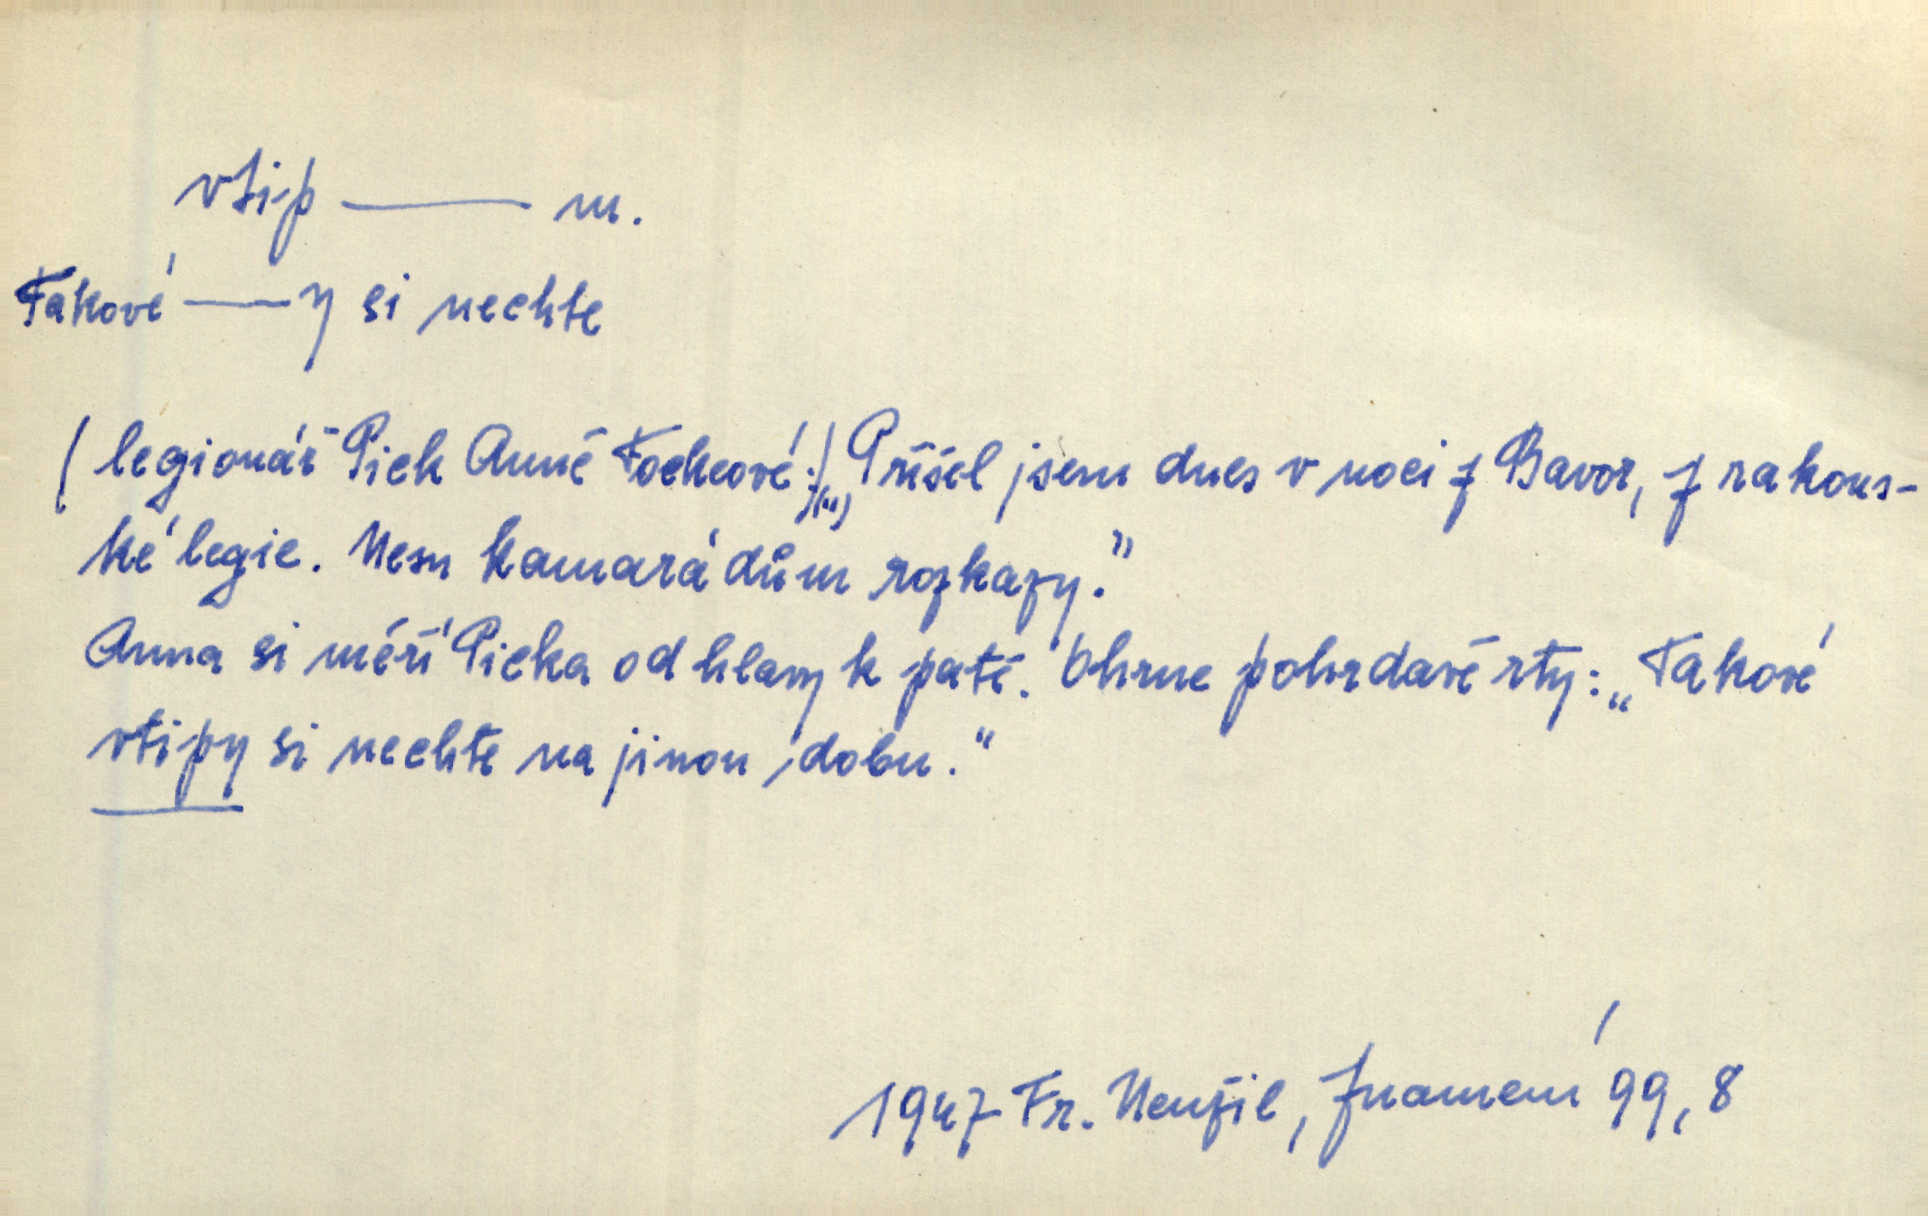 vtip —— m.
Takové ——y si nechte
(legionář Pick Anně Fockeové:) („) Přišel jsem dnes v noci z Bavor, z rakous-
ké legie. Nesu kamarádům rozkazy."
Anna si měří Picka od hlavy k patě. Ohrne pohrdavě rty: „Takové
vtipy si nechte na jinou dobu."
1947 Fr. Neužil, Znamení 99, 8